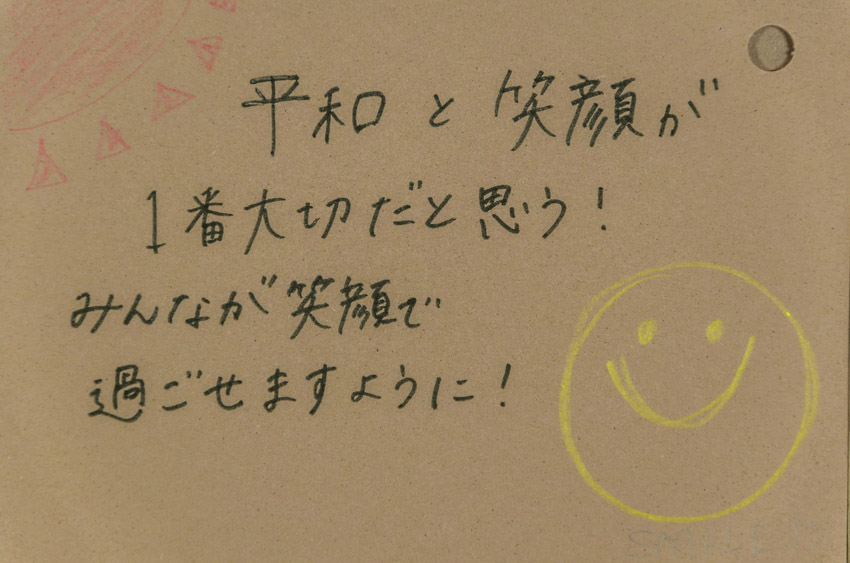 平和と笑顔が
1番大切だと思う！
みんなが笑顔で
過ごせますように！
SMILE